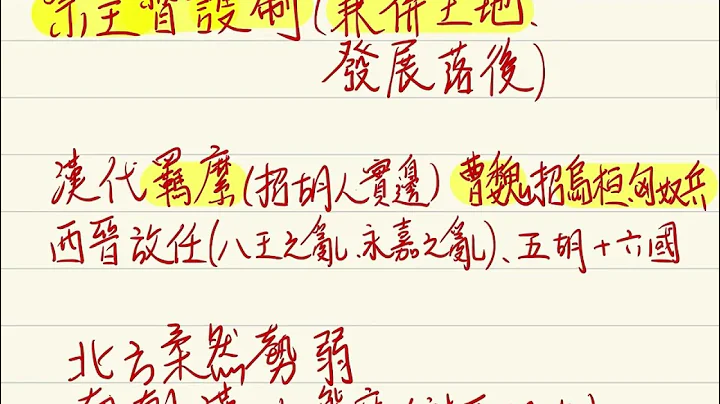 宗主督護制(兼併土地、
發展落後)
漢代羈縻(招胡人實邊) 曹魏招烏桓、匈奴兵
西晉放任(八王之亂、永嘉之亂)、五胡十六國
北方柔然勢弱